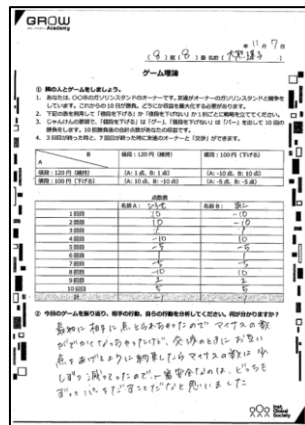 GROW
Academy
11月7日
(8)組(8)番 名前(
ゲーム理論
① 隣の人とゲームをしましょう。
1. あなたは、〇〇市のガソリンスタンドのオーナーです。友達がオーナーのガソリンスタンドと競争を
しています。これからの10日が勝負。どうにか収益を最大化する必要があります。
2. 下記の表を利用して「値段を下げる」か「値段を下げない」か1回ごとに戦略を立ててください。
3. じゃんけんの要領で、「値段を下げる」は「グー」、「値段を下げない」は「パー」を出して10回の
勝負をします。10回勝負後の合計点数があなたの収益です。
4. 3回目が終った時と、7回目が終った時に友達のオーナーと「交渉」ができます。
B
A
値段:120円(維持)
値段:100円(下げる)
値段:120円(維持)
(A: 1点、B: 1点)
(A: -10点、B: 10点)
値段:100円(下げる)
(A: 10点、B: -10点)
(A: -5点、B: -5点)
点数表
名前A:
名前B:
1回目 10 -10
2回目 10 -10
3回目
4回目 -10 10
5回目 -5 -5
6回目
7回目 -5 -5
8回目 -10 10
9回目
10回目
計 -1 -1
② 今回のゲームを振り返り、相手の行動、自分の行動を分析してください。何が分かりますか?
最初に相手に点とられちゃったのでマイナスの数
がでかくなっちゃったけど、交渉のときにお互い
点をあげるように約束したらマイナスの数は少
しずつ減ってったので、一番安全なのは、どっちも
ずっとパーをだすことだなと思いました
Inst.
Global
Society